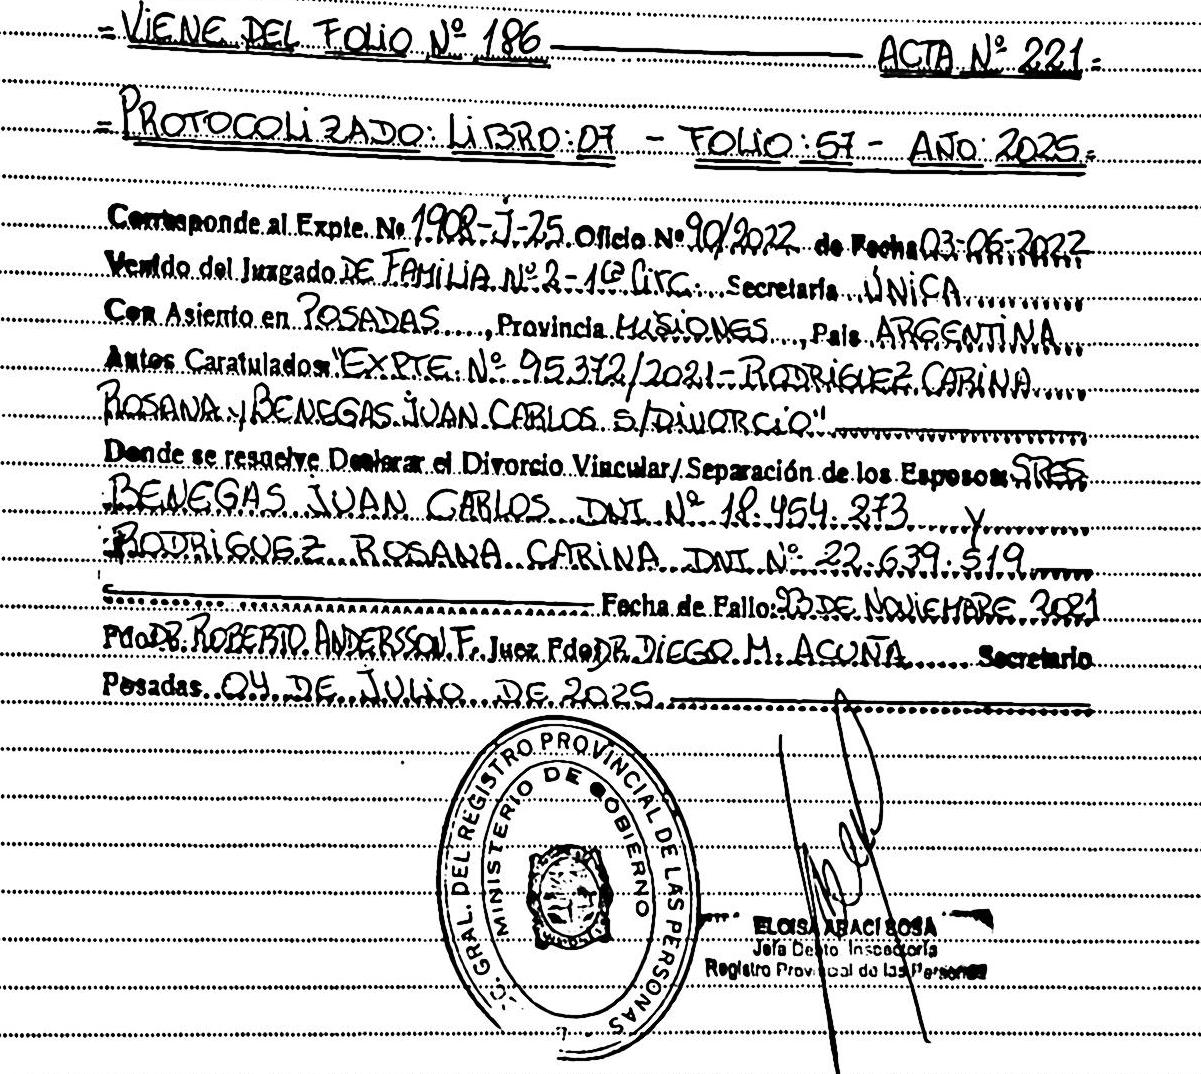 =VIENE DEL FOLIO Nº 186 ACTA Nº 221=
=PROTOCOLIZADO: LIBRO: 07 - FOLIO: 57 - AÑO: 2025=
Corresponde al Expte. Nº 1908-J-25 Oficio Nº 90/2022 de Fecha 03-06-2022
Venido del Juzgado DE FAMILIA Nº 2-1ª Circ. Secretaría ÚNICA
Con Asiento en POSADAS, Provincia MISIONES, País ARGENTINA
Autos Caratulados "EXPTE. Nº 95372/2021-RODRIGUEZ CARINA
ROSANA y BENEGAS JUAN CARLOS S/DIVORCIO"
Donde se resuelve Declarar el Divorcio Vincular/Separación de los Esposos: SRES.
BENEGAS JUAN CARLOS DNI Nº 18.454.273 y
RODRIGUEZ ROSANA CARINA DNI Nº 22.639.519
Fecha de Fallo: 23 DE NOVIEMBRE 2021
Fdo DR. ROBERTO ANDERSSON F. Juez Fdo DR DIEGO M. ACUÑA Secretario
Posadas 04 DE JULIO DE 2025
C. GRAL. DEL REGISTRO PROVINCIAL DE LAS PERSONAS
MINISTERIO DE GOBIERNO
ELOISA ARACI SOSA
Jefa Depto Inspectoría
Registro Provincial de las Personas